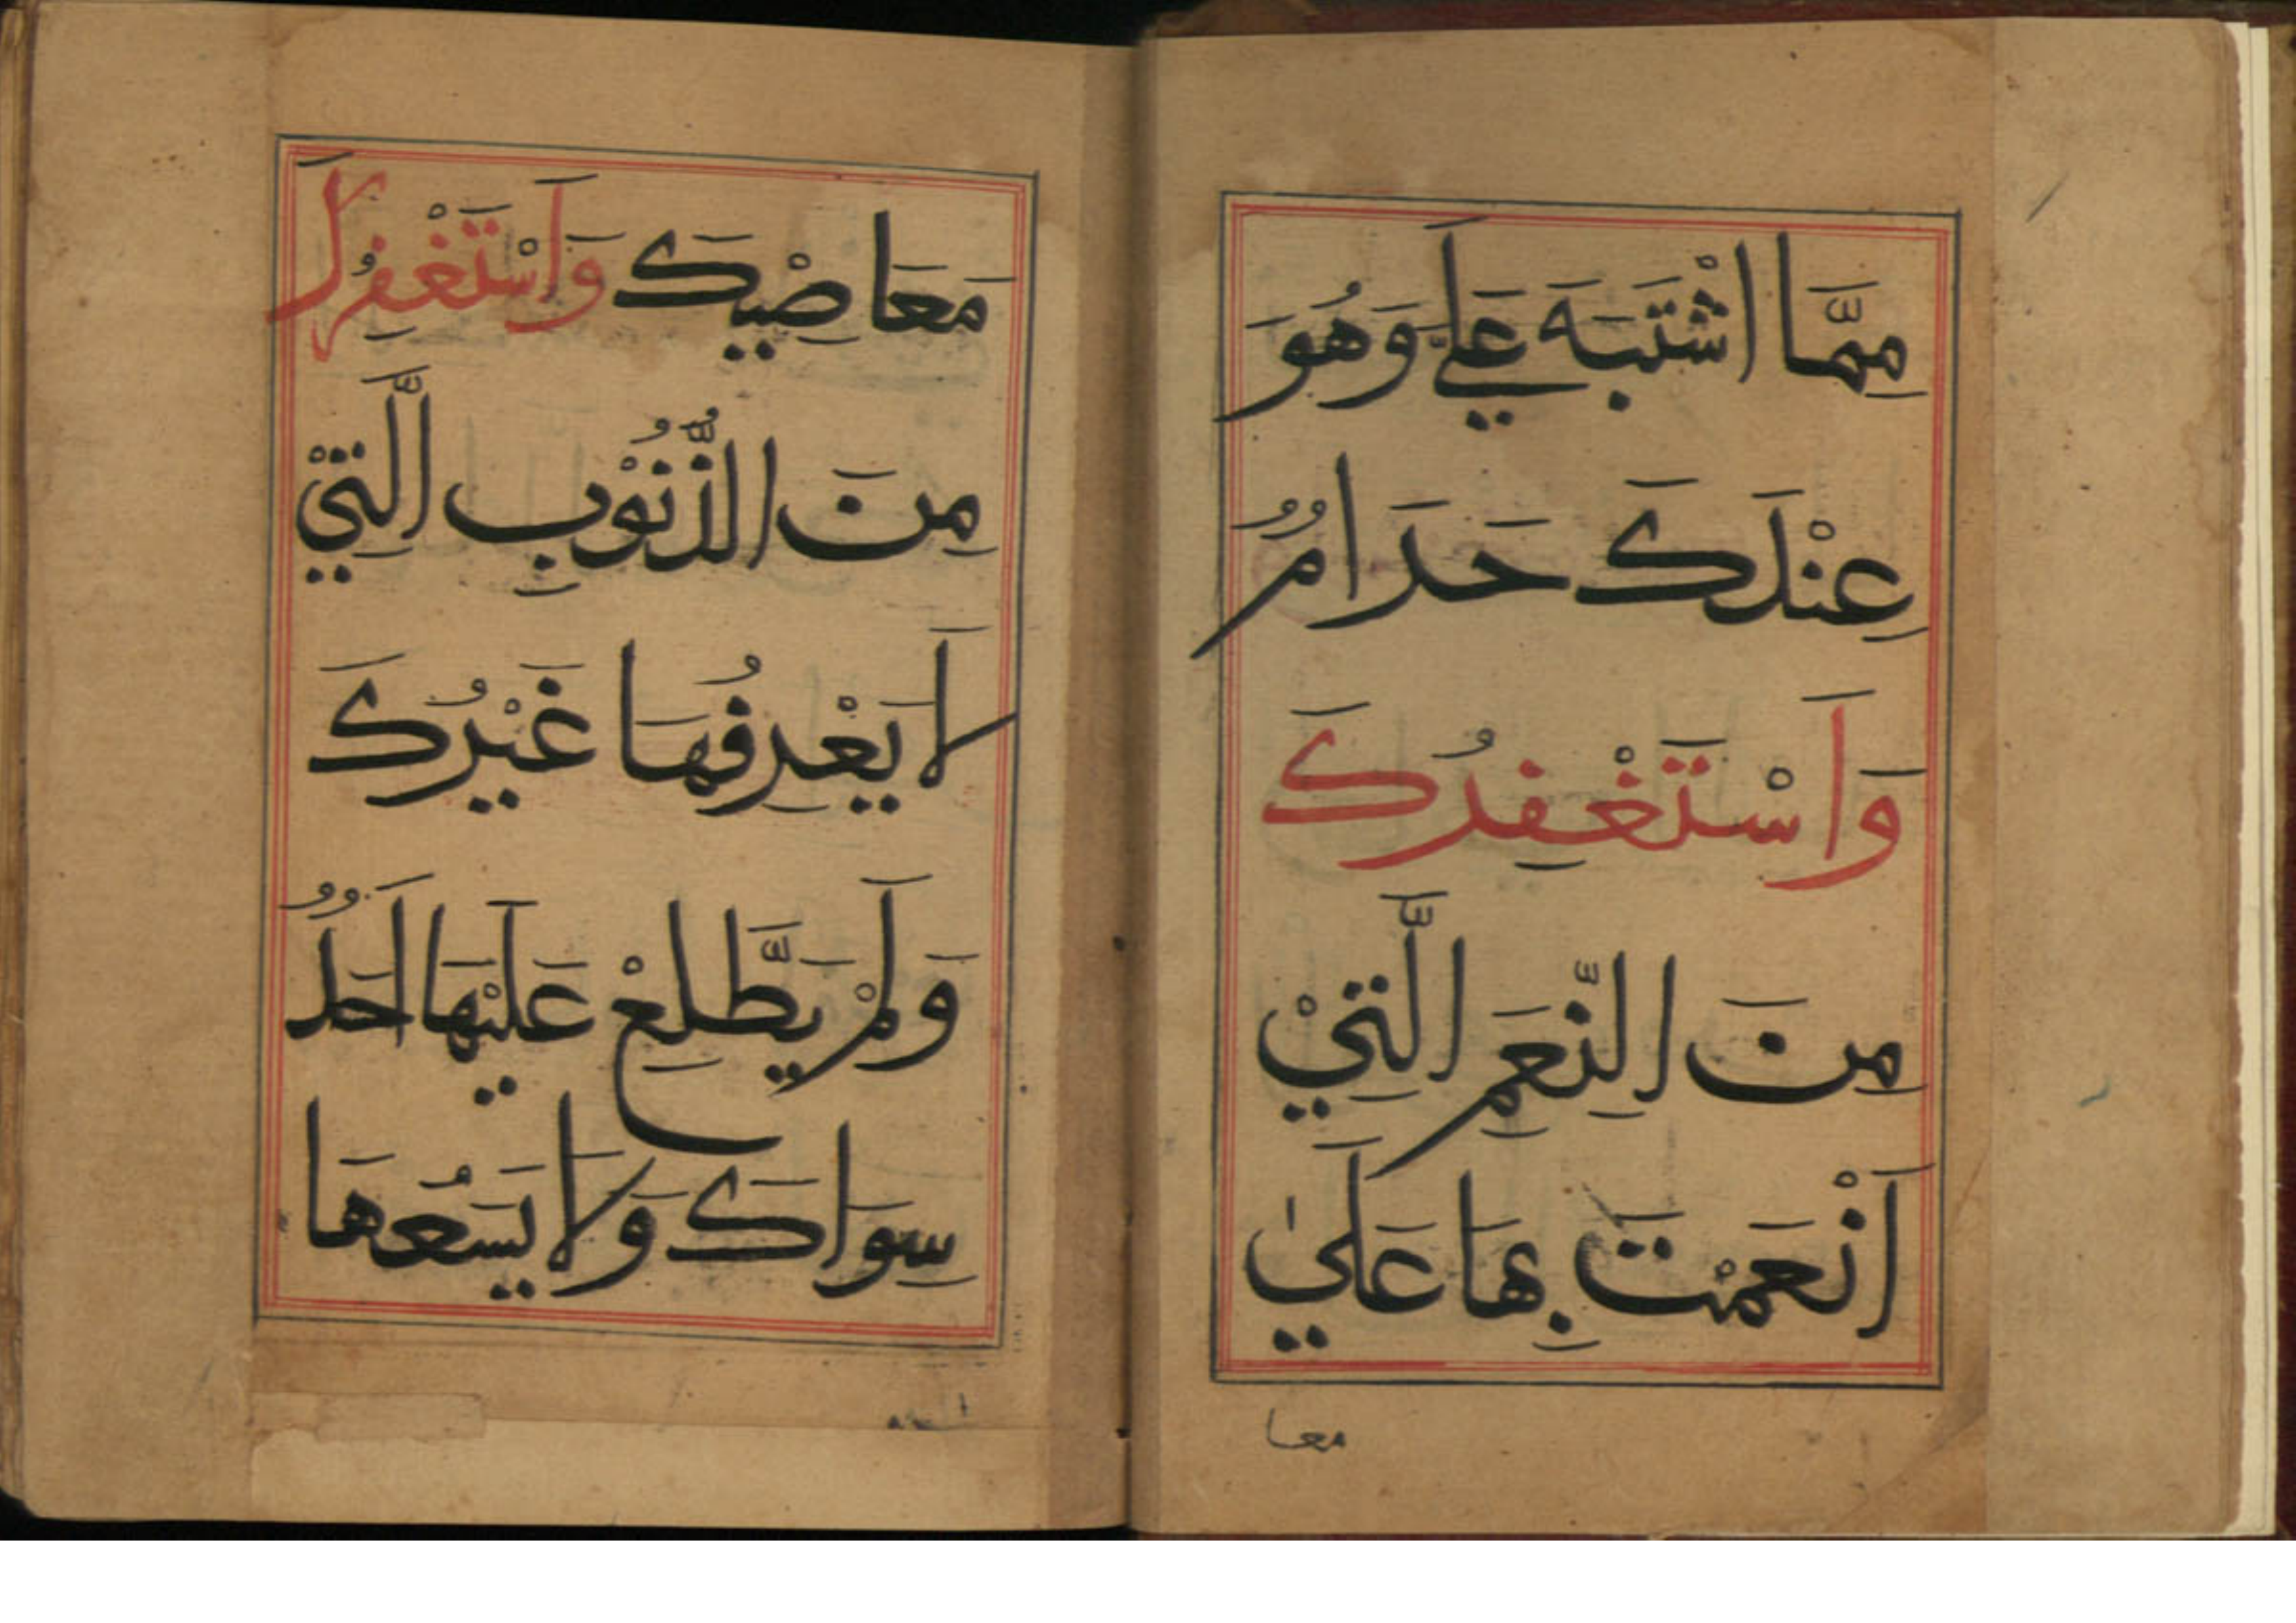 مِمَّا اشْتَبَهَ عَلَيَّ وَهُوَ
عِنْدَكَ حَرَامٌ
وَاَسْتَغْفِرُكَ
مِنَ النِّعَمِ الَّتِيْ
اَنْعَمْتَ بِهَا عَلَيٰ
معا
مَعَاصِيْكَ وَاَسْتَغْفِرُكَ
مِنَ الذُّنُوْبِ الَّتِيْ
لَا يَعْرِفُهَا غَيْرُكَ
وَلَمْ يَطَّلِعْ عَلَيْهَا اَحَدٌ
سِوَاكَ وَلَا يَسَعُهَا